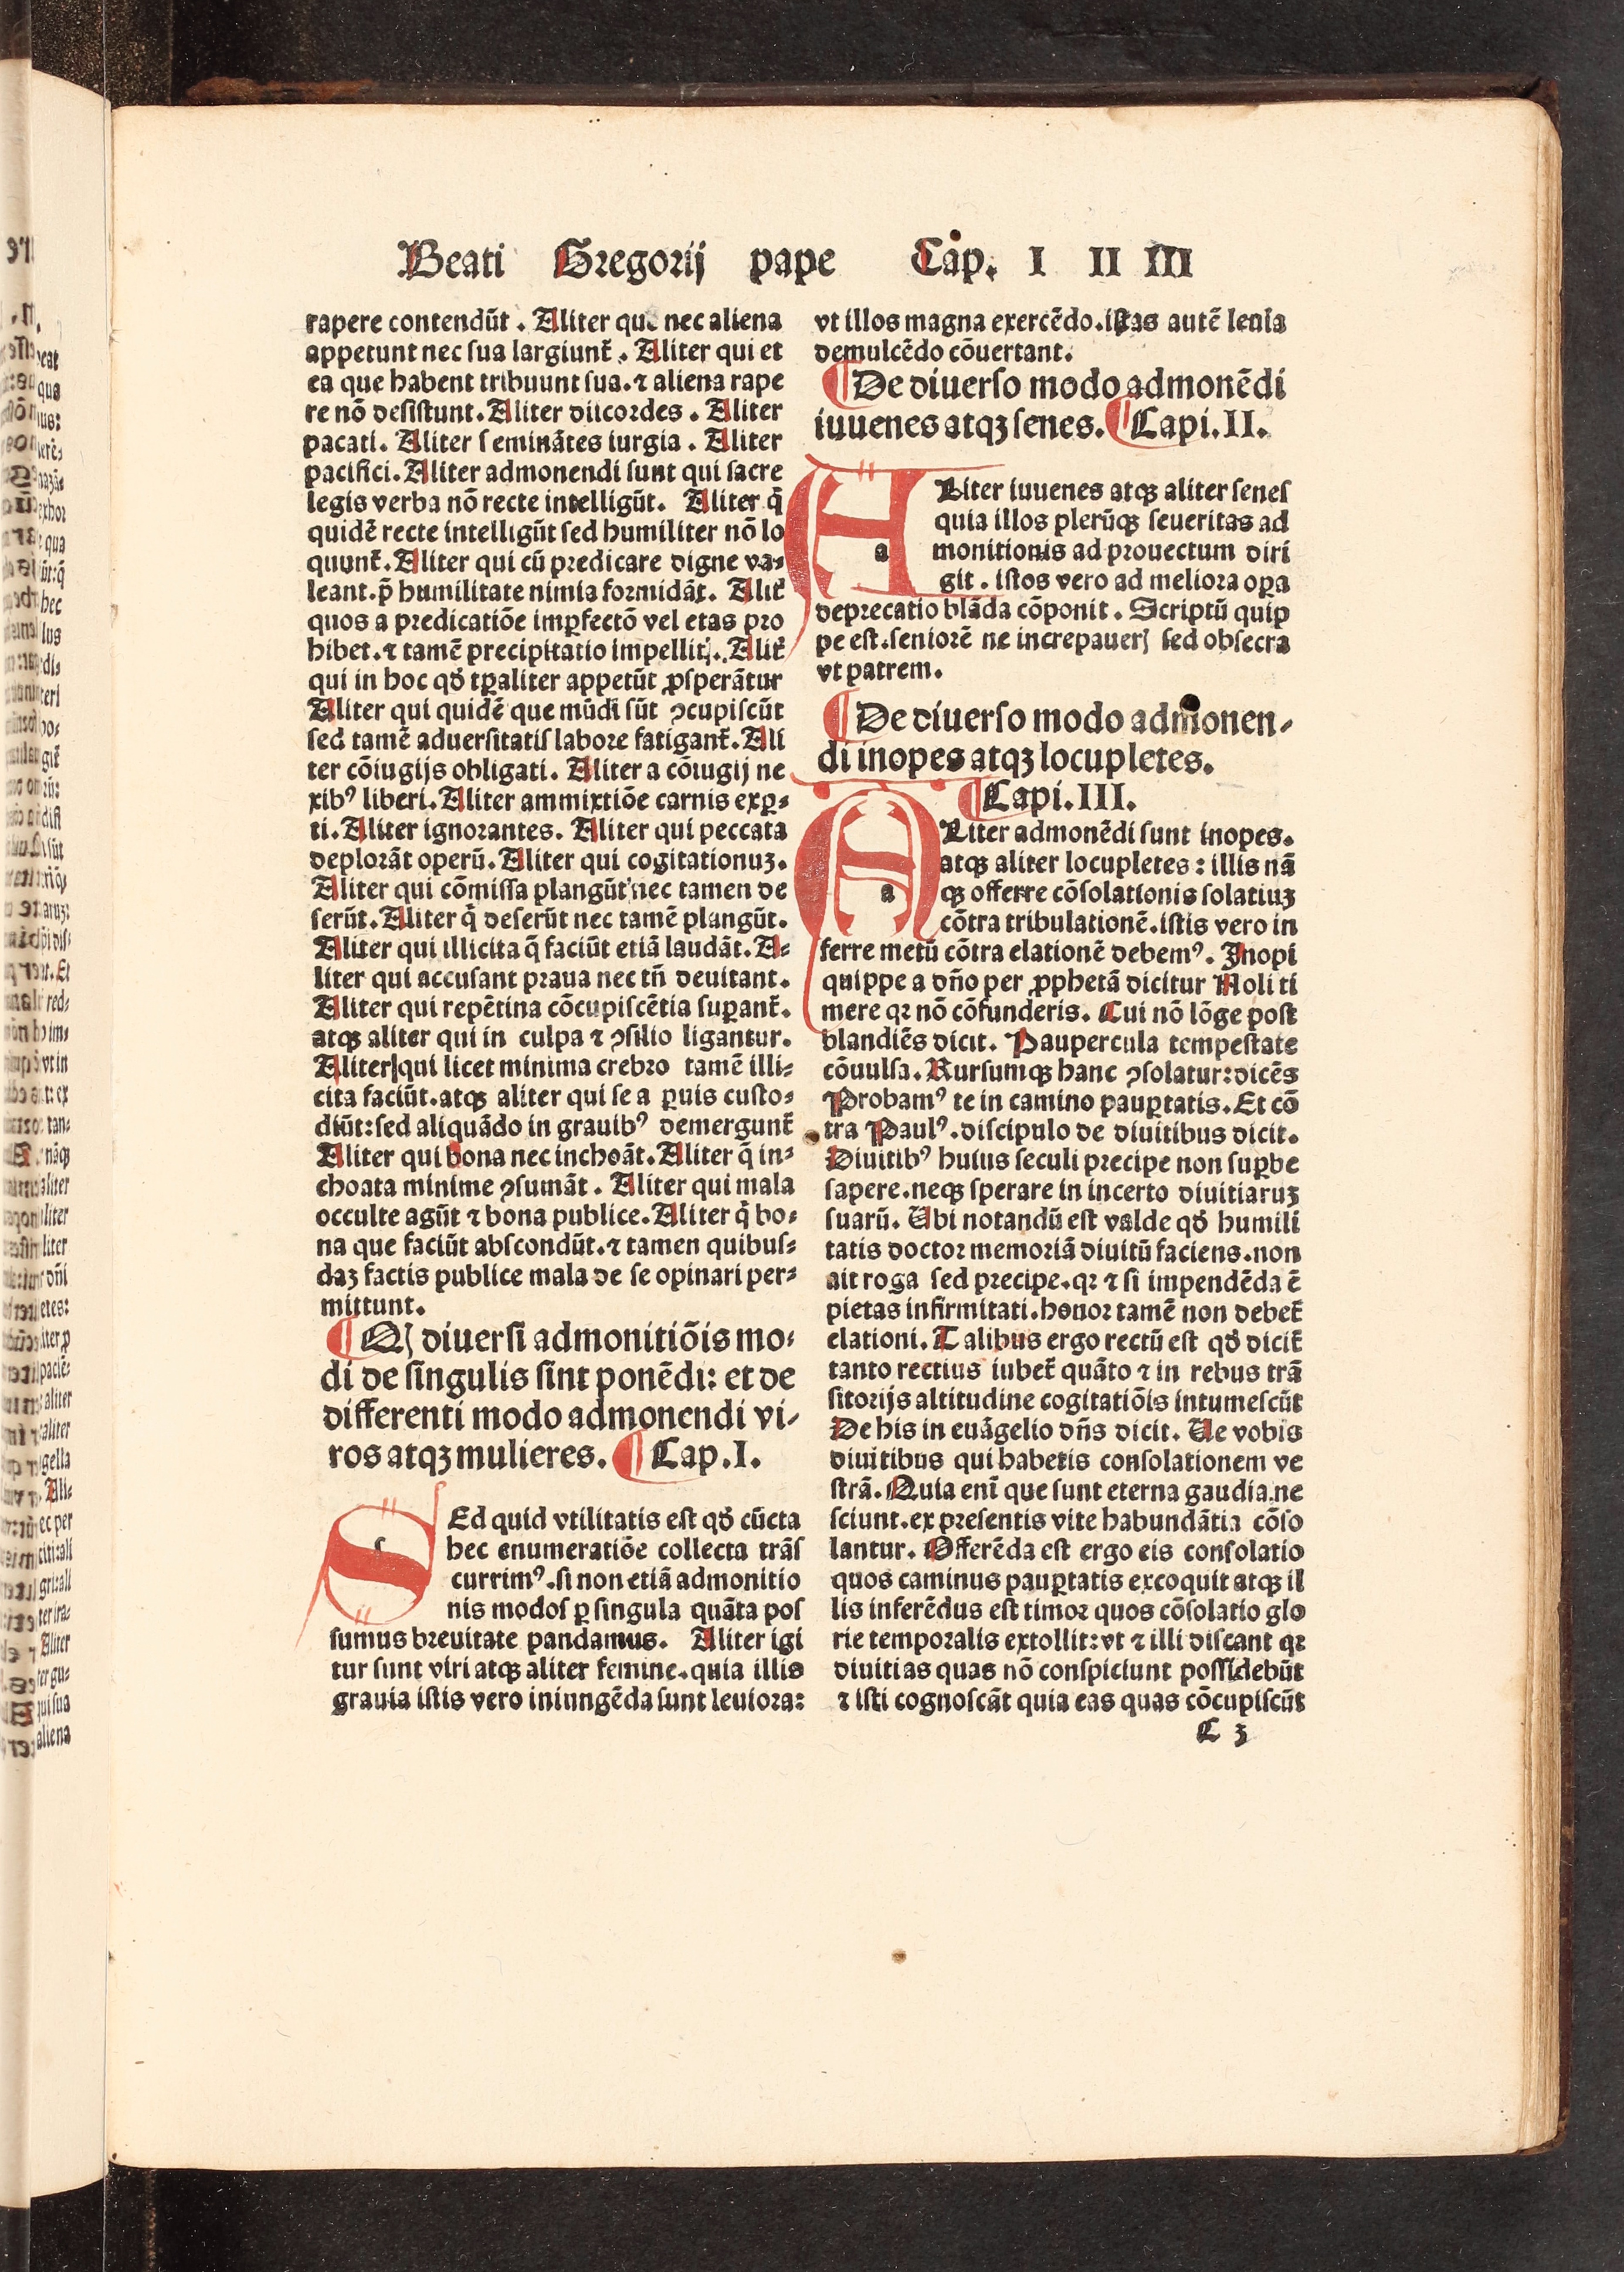 Beati Gregorij pape Cap. I II III
rapere contendūt. Aliter qui nec aliena
appetunt nec sua largiunt̄. Aliter qui et
ea que habent tribuunt sua. ⁊ aliena rape
re nō desistunt. Aliter discordes. Aliter
pacati. Aliter seminātes iurgia. Aliter
pacifici. Aliter admonendi sunt qui sacre
legis verba nō recte intelligūt. Aliter q̄
quidē recte intelligūt sed humiliter nō lo
quunt̄. Aliter qui cū predicare digne va⸗
leant. p̄ humilitate nimia formidāt. Alit̄
quos a predicatiōe imꝑfectō vel etas pro
hibet. ⁊ tamē precipitatio impellit. Alit̄
qui in hoc qd̄ tꝑaliter appetūt ꝓsperātur
Aliter qui quidē que mūdi sūt ꝯcupiscūt
sed tamē aduersitatis labore fatigant̄. Ali
ter cōiugijs obligati. Aliter a cōiugij ne
xibꝰ liberi. Aliter ammixtiōe carnis exꝑ⸗
ti. Aliter ignorantes. Aliter qui peccata
deplorāt operū. Aliter qui cogitationuꝫ.
Aliter qui cōmissa plangūt nec tamen de
serūt. Aliter q̄ deserūt nec tamē plangūt.
Aliter qui illicita q̄ faciūt etiā laudāt. A⸗
liter qui accusant praua nec tn̄ deuitant.
Aliter qui repētina cōcupiscētia suꝑant̄.
atqꝫ aliter qui in culpa ⁊ ꝯsilio ligantur.
Aliter qui licet minima crebro tamē illi⸗
cita faciūt. atqꝫ aliter qui se a ꝑuis custo⸗
diūt: sed aliquādo in grauibꝰ demergunt̄
Aliter qui bona nec inchoāt. Aliter q̄ in⸗
choata minime ꝯsumāt. Aliter qui mala
occulte agūt ⁊ bona publice. Aliter q̄ bo⸗
na que faciūt abscondūt. ⁊ tamen quibus⸗
daꝫ factis publice mala de se opinari per⸗
mittunt.
¶ Qꝫ diuersi admonitiōis mo⸗
di de singulis sint ponēdi: et de
differenti modo admonendi vi⸗
ros atqꝫ mulieres. ¶ Cap. I.
SEd quid vtilitatis est qd̄ cūcta
hec enumeratiōe collecta trās
currimꝰ. si non etiā admonitio
nis modos ꝑ singula quāta pos
sumus breuitate pandamus. Aliter igi
tur sunt viri atqꝫ aliter femine. quia illis
grauia istis vero iniungēda sunt leuiora:
vt illos magna exercēdo. istas autē lenia
demulcēdo cōuertant.
¶ De diuerso modo admonēdi
iuuenes atqꝫ senes. ¶ Capi. II.
ALiter iuuenes atqꝫ aliter senes
quia illos plerūqꝫ seueritas ad
monitionis ad prouectum diri
git. istos vero ad meliora oꝑa
deprecatio blāda cōponit. Scriptū quip
pe est. seniorē ne increpauerꝭ sed obsecra
vt patrem.
¶ De diuerso modo admonen⸗
di inopes atqꝫ locupletes.
¶ Capi. III.
ALiter admonēdi sunt inopes.
atqꝫ aliter locupletes: illis nā
qꝫ offerre cōsolationis solatiuꝫ
cōtra tribulationē. istis vero in
ferre metū cōtra elationē debemꝰ. Inopi
quippe a dn̄o per ꝓphetā dicitur Noli ti
mere qꝛ nō cōfunderis. Cui nō lōge post
blandiēs dicit. Paupercula tempestate
cōuulsa. Rursumqꝫ hanc ꝯsolatur: dicēs
Probamꝰ te in camino pauꝑtatis. Et cō
tra Paulꝰ. discipulo de diuitibus dicit.
Diuitibꝰ huius seculi precipe non suꝑbe
sapere. neqꝫ sperare in incerto diuitiaruꝫ
suarū. Ubi notandū est valde qd̄ humili
tatis doctor memoriā diuitū faciens. non
ait roga sed precipe. qꝛ ⁊ si impendēda ē
pietas infirmitati. honor tamē non debet̄
elationi. Talibus ergo rectū est qd̄ dicit̄
tanto rectius iubet̄ quāto ⁊ in rebus trā
sitorijs altitudine cogitatiōis intumescūt
De his in euāgelio dn̄s dicit. Ue vobis
diuitibus qui habetis consolationem ve
strā. Quia enī que sunt eterna gaudia ne
sciunt. ex presentis vite habundātia cōso
lantur. Offerēda est ergo eis consolatio
quos caminus pauꝑtatis excoquit atqꝫ il
lis inferēdus est timor quos cōsolatio glo
rie temporalis extollit: vt ⁊ illi discant qꝛ
diuitias quas nō conspiciunt possidebūt
⁊ isti cognoscāt quia eas quas cōcupiscūt
C 3